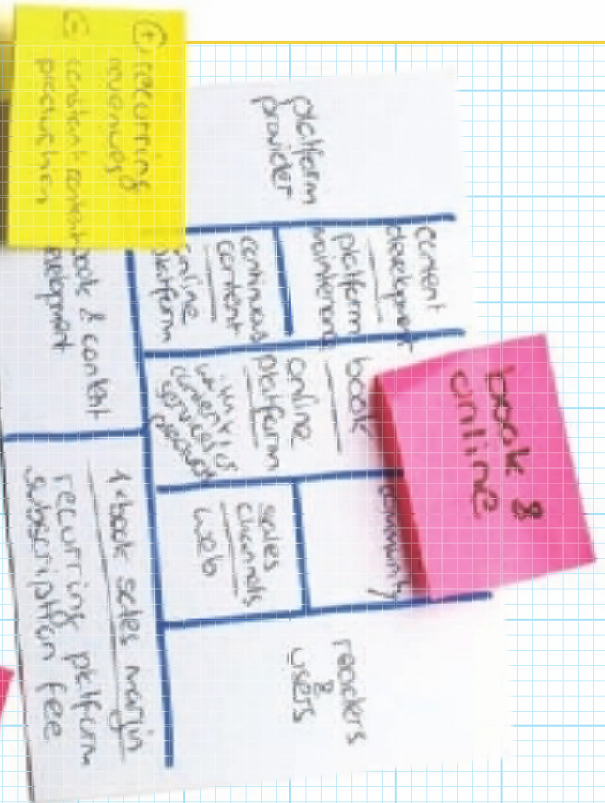 (+) recurring
revenues
(-) constant content
production
platform
provider
content
development
platform
maintenance
continuous
content
online
platform
book
online
platform
content
services
book &
online
community
sales
channels
web
readers
&
users
book & content
development
1x book sales margin
recurring platform
subscription fee